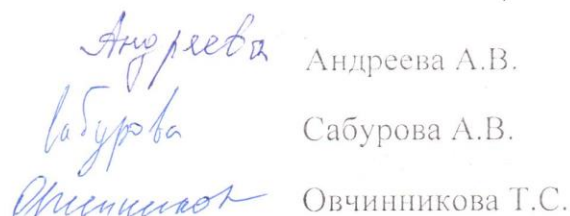 Андреева Андреева А.В.
Сабурова Сабурова А.В.
Овчинников Овчинникова Т.С.